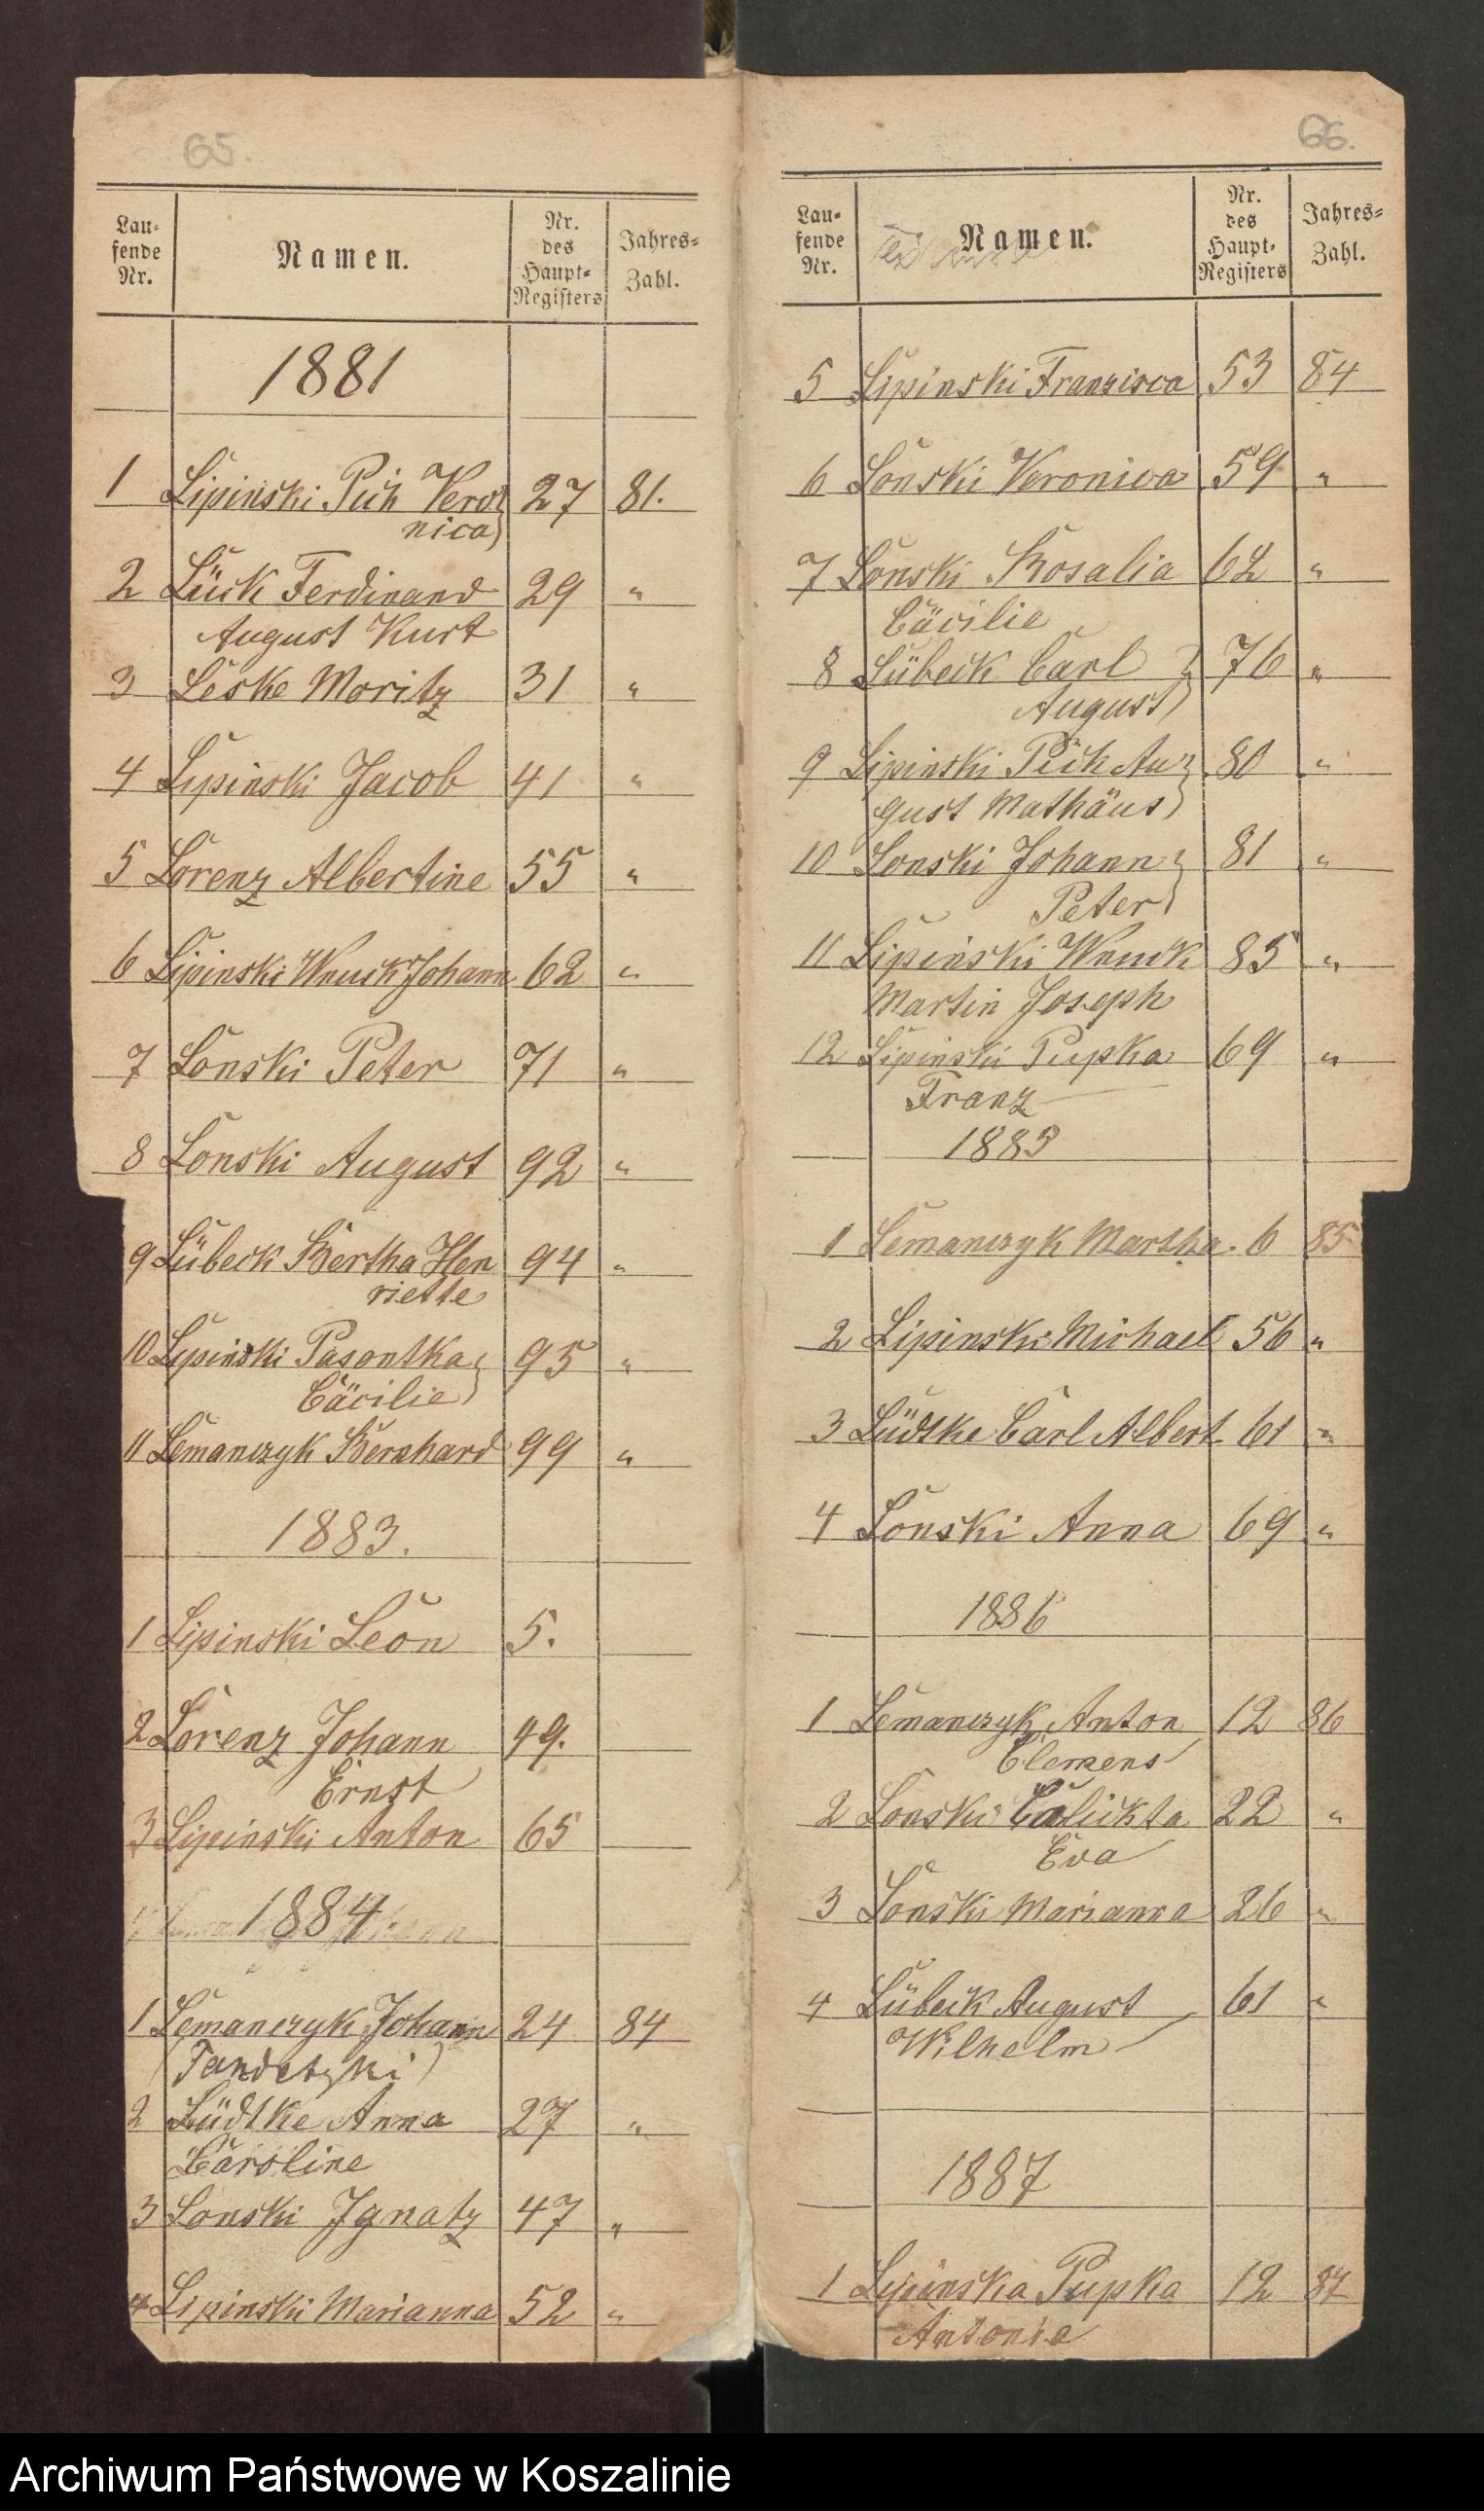 65.
Lau-
fende
Nr.
Namen.
Nr.
des
Haupt-
Registers
Jahres-
Zahl.
1881
1 Lipinski Pich Vero 27 81.
nica
2 Lück Ferdinand 29 "
August Kurt
3 Leske Moritz 31 "
4 Lipinski Jacob 41 "
5 Lorenz Albertine 55 "
6 Lipinski Wnuck Johann 62 "
7 Lonski Peter 71 "
8 Lonski August 92 "
9 Lübeck Bertha Hen 94 "
riette
10 Lipinski Pasontka 95 "
Cäcilie
11 Lemanczyk Bernhard 99 "
1883.
1 Lipinski Leon 5.
2 Lorenz Johann 49.
Ernst
3 Lipinski Anton 65
1884.
1 Lemanczyk Johann 24 84
(Tandetzki)
2 Lüdtke Anna 27 "
Caroline
3 Lonski Ignatz 47 "
4 Lipinski Marianna 52 "
66.
Lau-
fende
Nr.
Namen.
Nr.
des
Haupt-
Registers
Jahres-
Zahl.
5 Lipinski Franzisca 53 84
6 Lonski Veronica 59 "
7 Lonski Rosalia 62 "
Cäcilie
8 Lübeck Carl 76 "
August
9 Lipinski Pich Au 80 "
gust Mathäus
10 Lonski Johann 81 "
Peter
11 Lipinski Wnuck 85 "
Martin Joseph
12 Lipinski Pupka 69 "
Franz
1885
1 Lemanczyk Martha. 6 85
2 Lipinski Michael 56 "
3 Lüdtke Carl Albert 61 "
4 Lonski Anna 69 "
1886
1 Lemanczyk Anton 12 86
Clemens
2 Lonski Calickta 22 "
Eva
3 Lonski Marianna 26 "
4 Lübeck August 61 "
Wilhelm
1887
1 Lipinska Pupka 12 87
Antonie
Archiwum Państwowe w Koszalinie